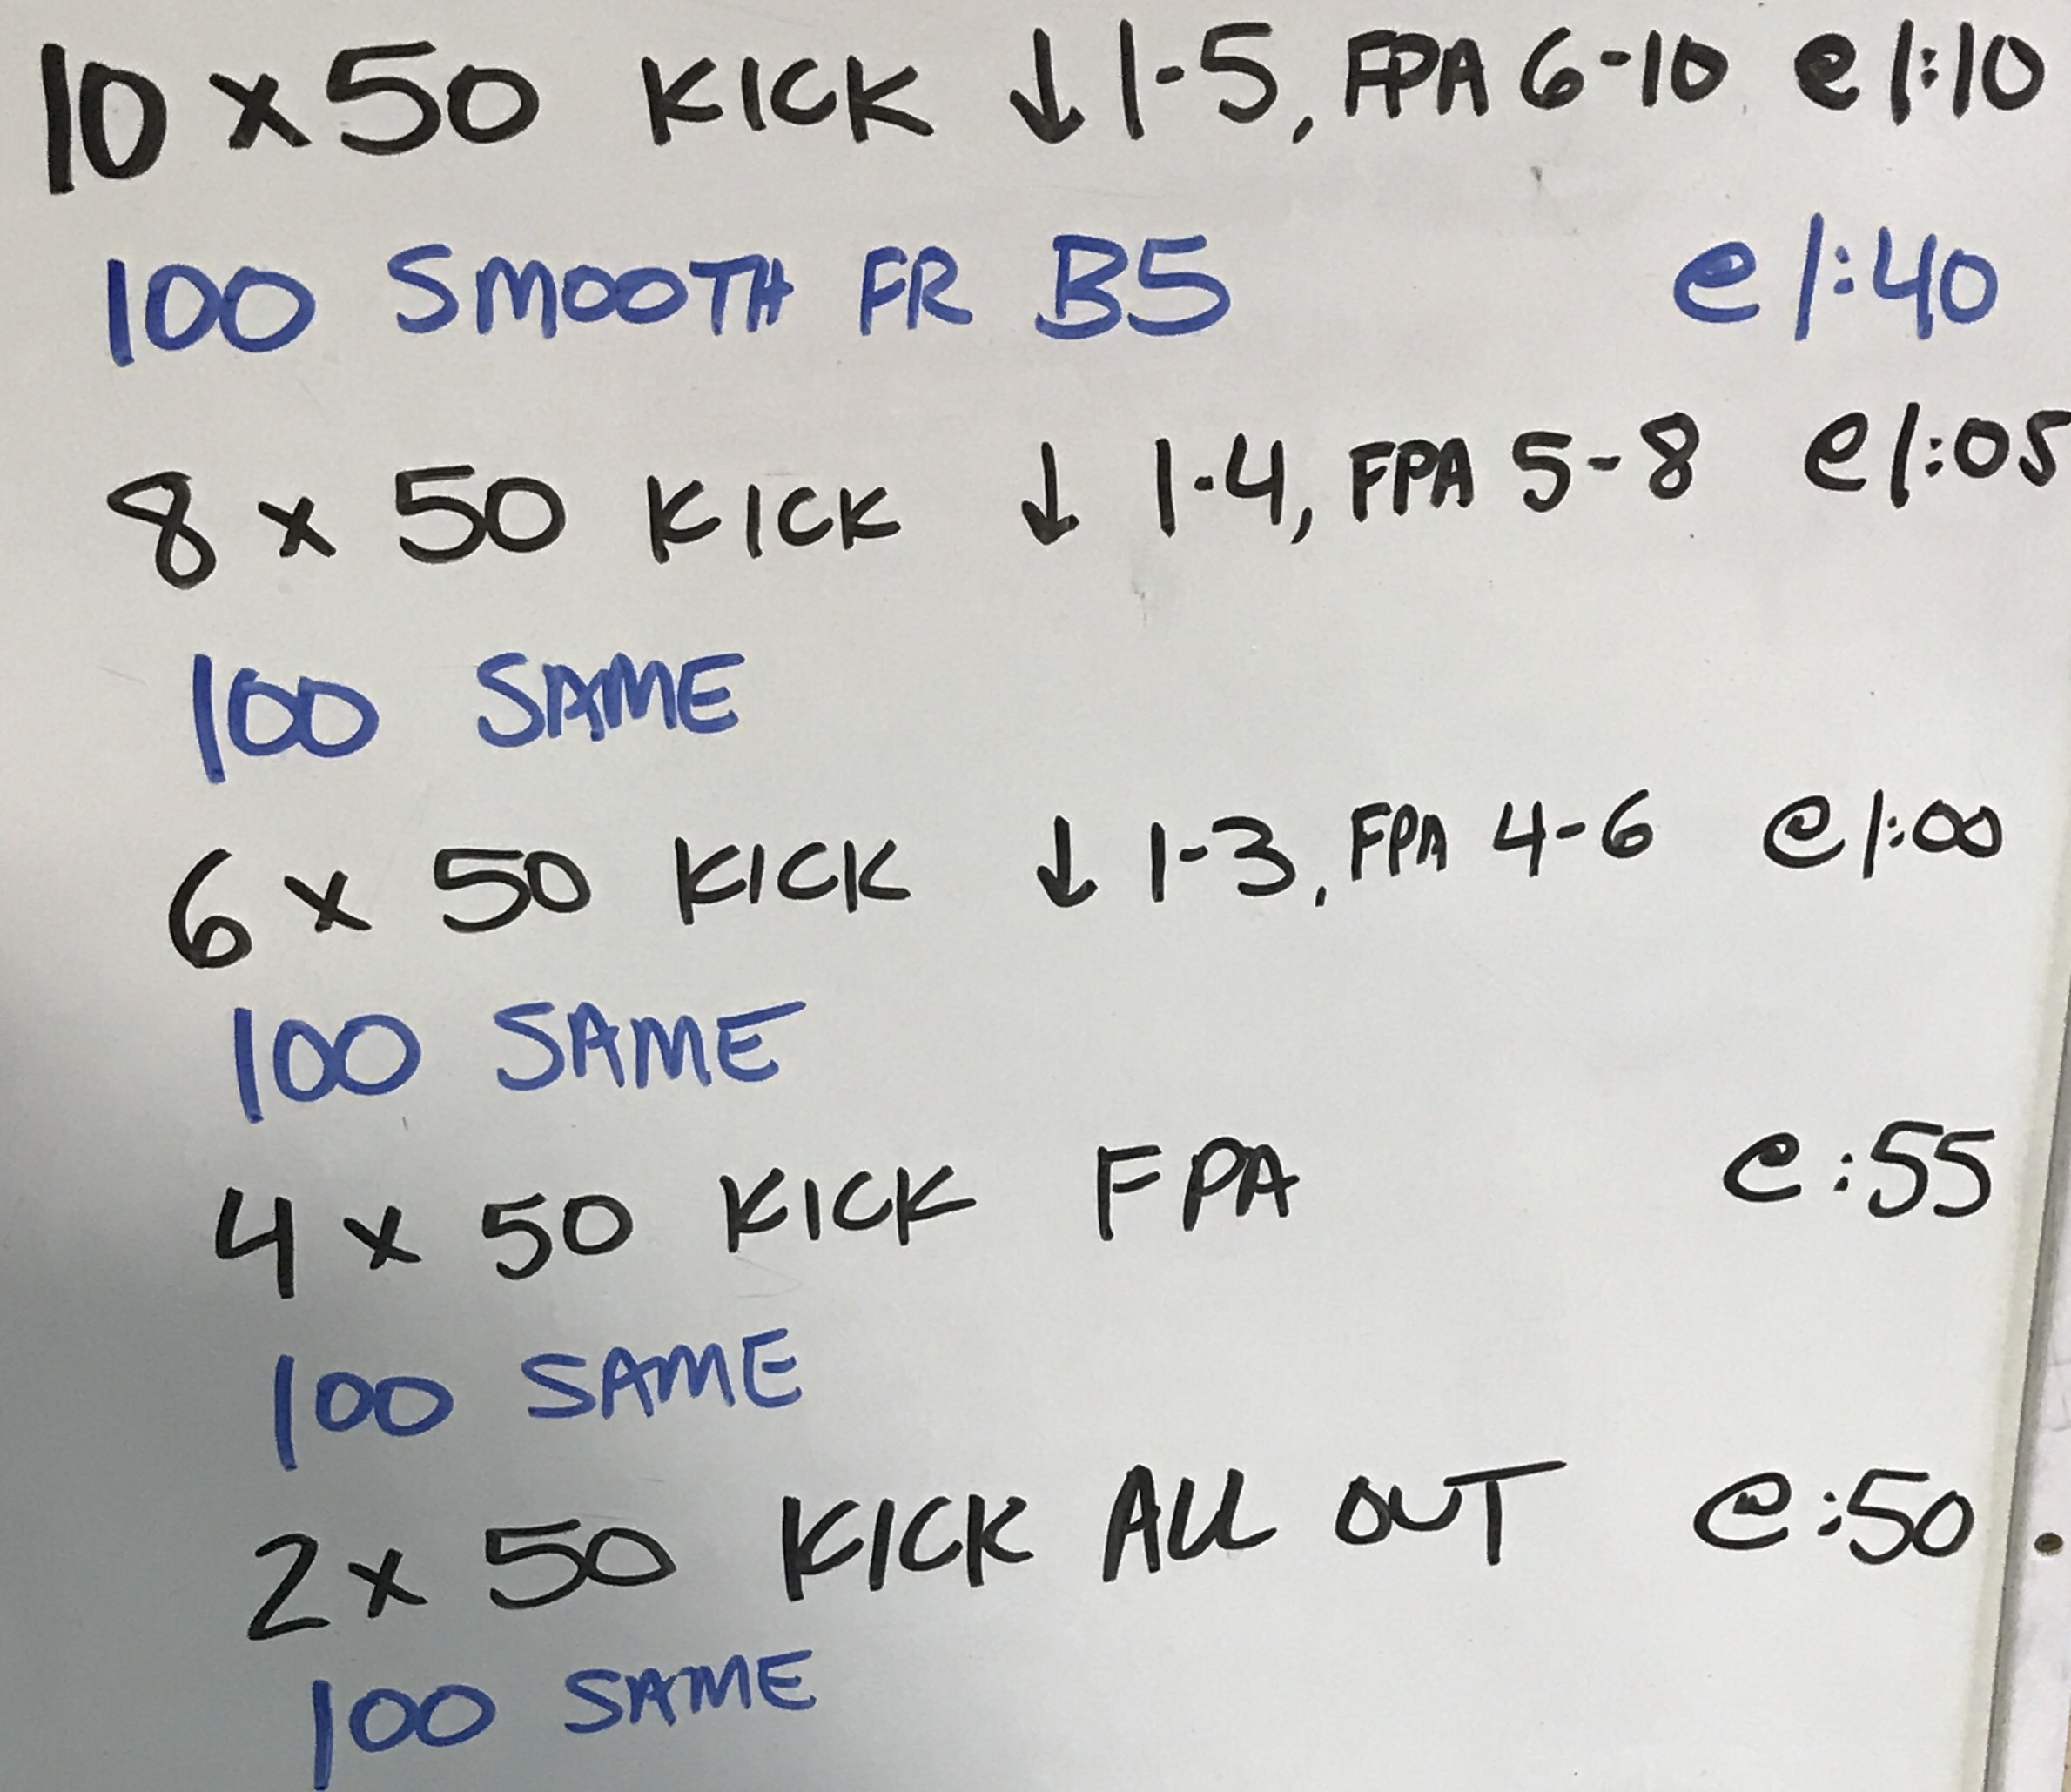 10 x 50 KICK ↓ 1-5, FPA 6-10 @ 1:10
100 SMOOTH FR B5 @ 1:40
8 x 50 KICK ↓ 1-4, FPA 5-8 @ 1:05
100 SAME
6 x 50 KICK ↓ 1-3, FPA 4-6 @ 1:00
100 SAME
4 x 50 KICK FPA @ :55
100 SAME
2 x 50 KICK ALL OUT @ :50
100 SAME